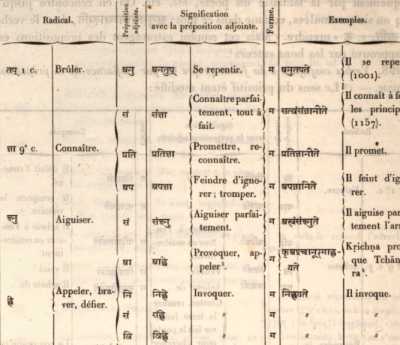 Radical.
Préposition adjointe.
Signification
avec la préposition adjointe.
Forme.
Exemples.
तप् 1 c. Brûler. अनु अनुतप् Se repentir. म अनुतपते Il se repe
(1001).
Connaître parfai-
tement, tout à
fait.
सं संज्ञा म
Il connaît à fo
les princip
(1157).
ज्ञा 9e c. Connaître. प्रति प्रतिज्ञा Promettre, re-
connaître.
म प्रतिजानीते Il promet.
अप अपज्ञा Feindre d'igno-
rer; tromper.
म अपजानीते Il feint d'ig
rer.
क्ष्णु Aiguiser. सं संक्ष्णु Aiguiser parfai-
tement.
म Il aiguise par
tement l'ar
आ आह्वे Provoquer, ap-
peler
म
Kṛichṇa pro
que Tchân
ra
ह्वे Appeler, bra-
ver, défier.
नि निह्वे Invoquer. म निह्वयते Il invoque.
सं संह्वे " " "
वि विह्वे " " "